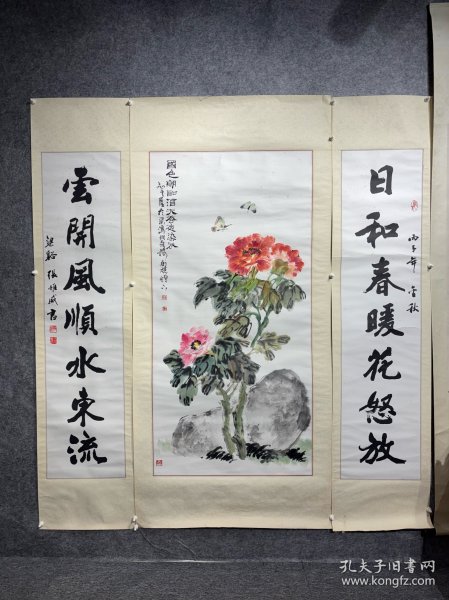 日和春暖花怒放
丙子年 金秋
國色朝酣酒天香夜染衣
雲開風順水東流
梁谿 張惟威書
孔夫子旧书网
www.kongfz.com